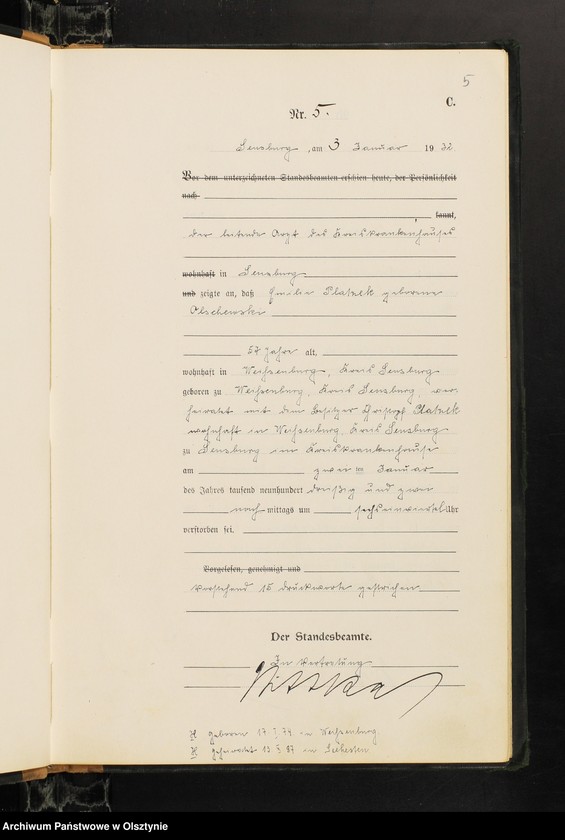 5
C.
Nr. 5.
Sensburg, am 3 Januar 1932
Vor dem unterzeichneten Standesbeamten erschien heute, der Persönlichkeit
nach
kannt,
der leitende Arzt des Kreiskrankenhauses
wohnhaft in Sensburg
und zeigte an, daß Emilie Platzek geborene
Olschewski
57 Jahre alt,
wohnhaft in Weißenburg, Kreis Sensburg
geboren zu Weißenburg, Kreis Sensburg, ver-
heiratet mit dem Besitzer Platzek
wohnhaft in Weißenburg, Kreis Sensburg
zu Sensburg im Kreiskrankenhause
am zweiten Januar
des Jahres tausend neunhundert dreißig und zwei
nach mittags um sechseinviertel Uhr
verstorben sei.
Vorgelesen, genehmigt und
Vorstehend 15 Druckworte gestrichen
Der Standesbeamte.
In Vertretung
geboren 17. 74 in Weißenburg
geheiratet in Seehesten
Archiwum Państwowe w Olsztynie